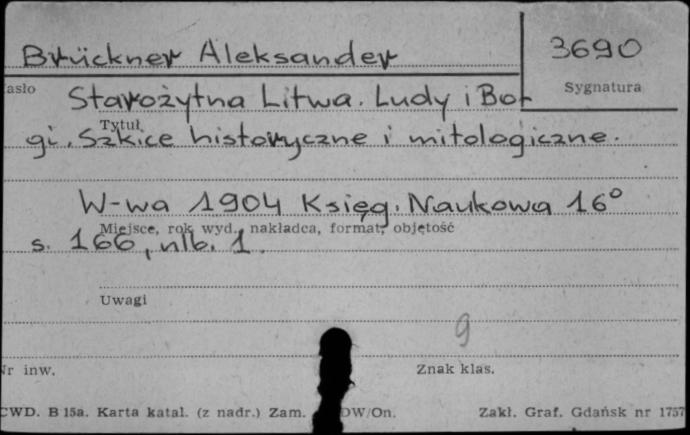 Brückner Aleksander
3690
asło
Sygnatura
Starożytna Litwa. Ludy i Bo-
Tytuł
gi. Szkice historyczne i mitologiczne.
W-wa 1904 Księg. Naukowa 16°
Miejsce, rok wyd., nakładca, format, objętość
s. 166, nlb. 1.
Uwagi
9
Nr inw.
Znak klas.
CWD. B 15a. Karta katal. (z nadr.) Zam. DW/On. Zakł. Graf. Gdańsk nr 1757